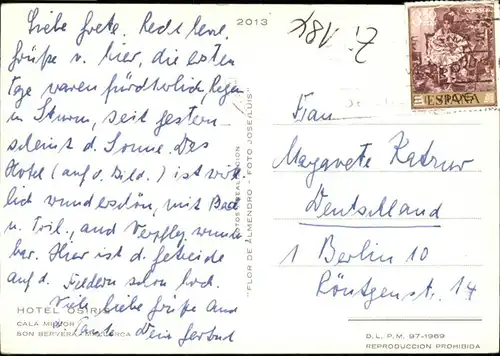 2013
Liebe Grete. Recht liebe
Grüße v. hier, die ersten
Tage waren fürchterlich, Regen
u. Sturm, seit gestern
scheint d. Sonne. Das
Hotel (auf d. Bild.) ist wirk
lich wunderschön, mit Bad
u. Toil., auch Verpfleg. wunder
bar. Hier ist d. Getreide
auf d. Feldern schon hoch.
Viele, liebe Grüße auch
Dein
HOTEL OSIRIS
CALA MILLOR
SON SERVERA MALLORCA
"FLOR DE ALMENDRO" - FOTO JOSE LUIS
CORREOS
ESPAÑA
Frau
Margarete
Deutschland
1 Berlin 10
Röntgenstr. 14
D. L. P. M. 97-1969
REPRODUCCION PROHIBIDA